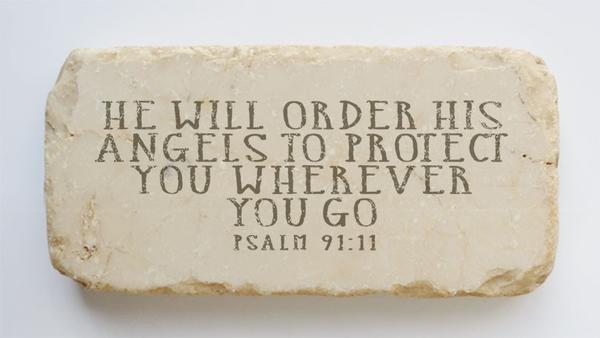 HE WILL ORDER HIS
ANGELS TO PROTECT
YOU WHEREVER
YOU GO
PSALM 91:11